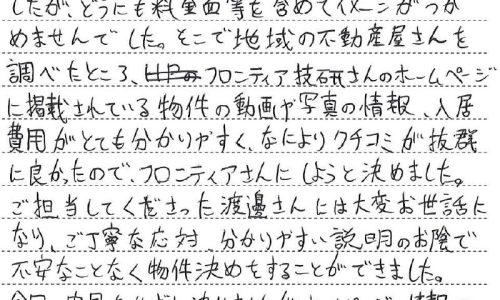 したが、どうにも料金面等を含めてイメージがつか
めませんでした。そこで地域の不動産屋さんを
調べたところ、フロンティア技研さんのホームページ
に掲載されている物件の動画や写真の情報、入居
費用がとても分かりやすく、なによりクチコミが抜群
に良かったので、フロンティアさんにしようと決めました。
ご担当してくださった渡邊さんには大変お世話に
なり、ご丁寧な応対、分かりやすい説明のお陰で
不安なことなく物件決めをすることができました。